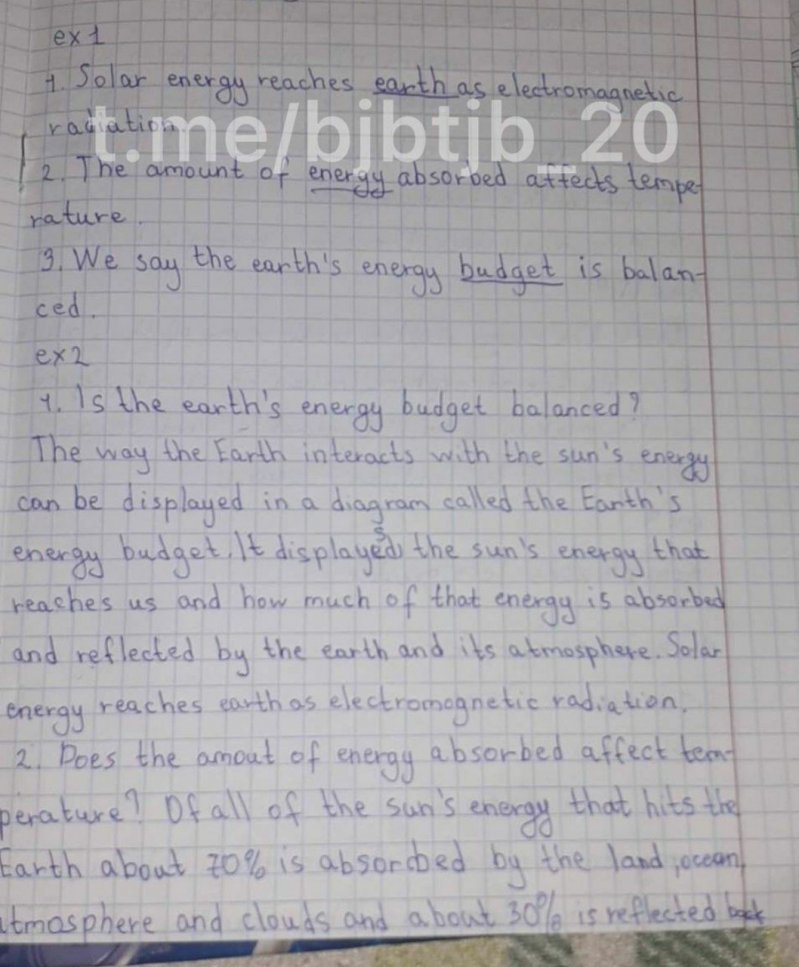 ex 1
1. Solar energy reaches earth as electromagnetic
radiation
t.me/bjbtjb_20
2. The amount of energy absorbed affects tempe-
rature.
3. We say the earth's energy budget is balan-
ced.
ex 2
1. Is the earth's energy budget balanced?
The way the Earth interacts with the sun's energy
can be displayed in a diagram called the Earth's
energy budget. It displayeds the sun's energy that
reaches us and how much of that energy is absorbed
and reflected by the earth and its atmosphere. Solar
energy reaches earth as electromagnetic radiation.
2. Does the amout of energy absorbed affect tem-
perature? Of all of the sun's energy that hits the
Earth about 70% is absorbed by the land, ocean,
atmosphere and clouds and about 30% is reflected back